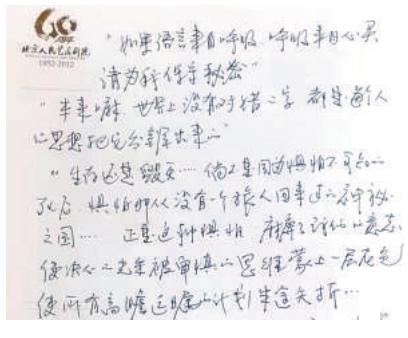 60
北京人民艺术剧院
1952-2012
“如果语言来自呼吸，呼吸来自心灵
请为我保守秘密”
“本来嘛，世界上没有对错二字，都是人
思想把它分出来的”
“生存还是毁灭……倘不是因为惧怕不可知的
死后，惧怕那从没有一个旅人回来过的神秘
之国……正是这种惧怕，麻痹了我们的意志，
使决心之光被审慎的思维蒙上一层灰色
使所有高瞻远瞩的计划半途夭折…